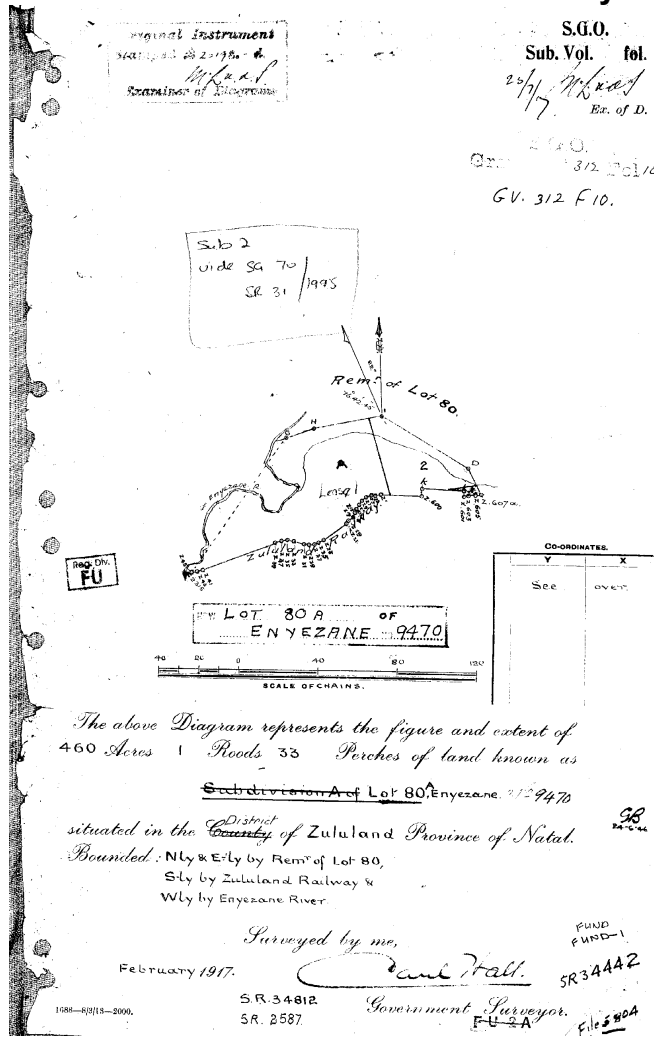 Original Instrument
Examiner of Diagrams
S.G.O.
Sub. Vol. fol.
Ex. of D.
S.G.O.
312 Fol 10
GV. 312 F 10.
Sub 2
vide SG 70/1995
SR 31
Remr. of Lot 80.
H
A
2
D
k
Enyezane R.
Zululand Railway
2.607a
Reg. Div.
FU
CO-ORDINATES.
Y X
See over
NOW LOT 80 A OF
ENYEZANE 9470
40 20 0 40 80 120
SCALE OF CHAINS.
The above Diagram represents the figure and extent of
460 Acres 1 Roods 33 Perches of land known as
Subdivision A of Lot 80 A, Enyezane 9470
District
situated in the County of Zululand Province of Natal.
Bounded: Nly & E-ly by Remr of Lot 80,
S-ly by Zululand Railway &
Wly by Enyezane River
Surveyed by me,
February 1917.
Paul Hall.
Government Surveyor.
S.R. 34812
SR. 2587
FU 2A
FUND
FUND-1
SR 34442
File 5804
1688—8/3/13—2000.